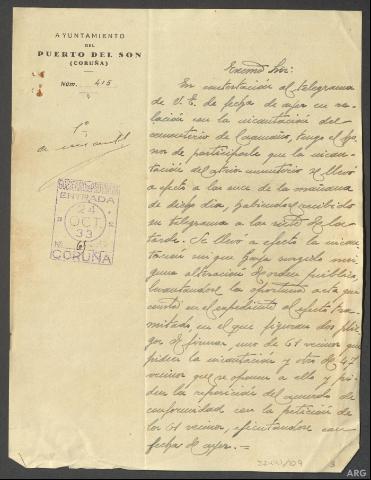 AYUNTAMIENTO
DEL
PUERTO DEL SON
(CORUÑA)
Núm. 415
Excmo Sor:
En contestación al telegrama
de V. E. de fecha de ayer en re-
lación con la incautación del
cementerio de Caamaño, tengo el ho-
nor de participarle que la incau-
tación del atrio cementerio se llevó
a efecto a las once de la mañana
de dicho dia, habiendo recibido
su telegrama a las siete de la
tarde. Se llevó a efecto la incau-
tacion sin que haya surgido nin-
guna alteración de orden público,
levantandose la oportuna acta que
consta en el expediente al efecto tra-
mitado, en el que figuran dos plie-
gos de firmas, uno de 61 vecinos que
piden la incautación y otro de 47
vecinos que se oponen a ello y pi-
den la reposición del acuerdo de
conformidad con la petición de
los 61 vecinos, efectuandose con
fecha de ayer. =
ENTRADA
24
OCT
33
CORUÑA
3
ARG